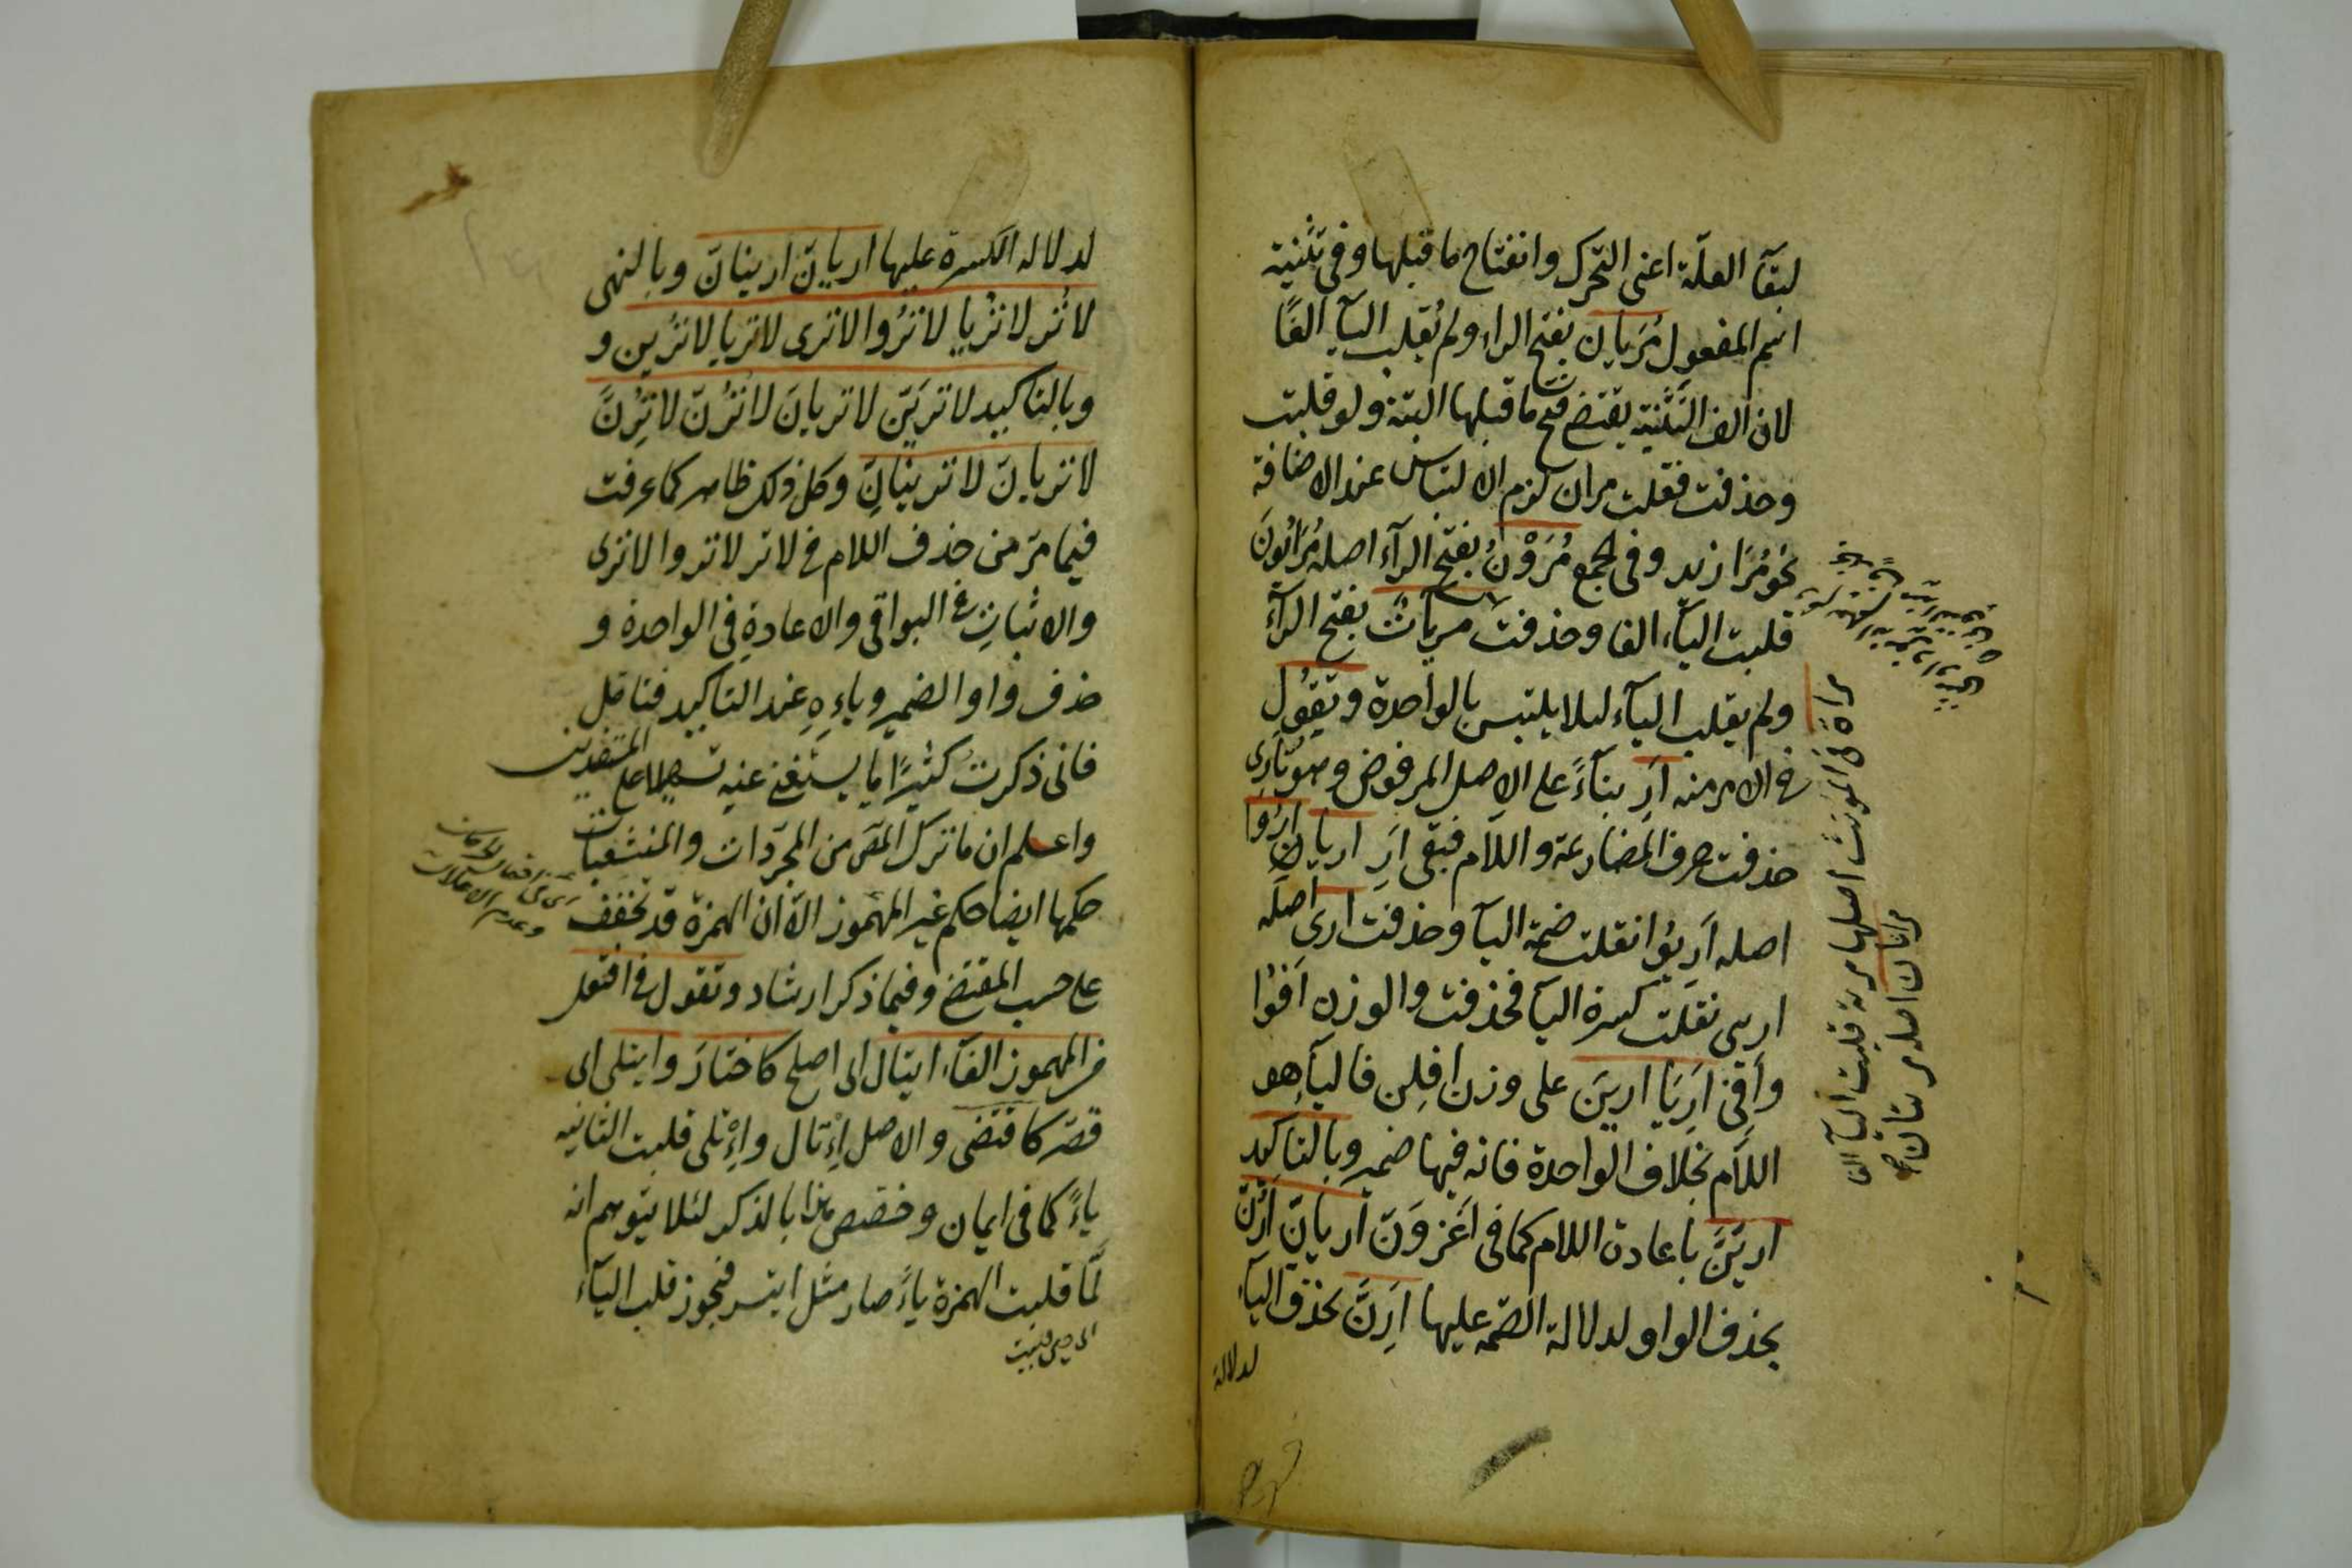 لبقآ العلّة اعنى التحرّك وانفتاح ما قبلها وفى تثنية
اسم المفعول مُرَيان بفتح الراء ولم تُقلب اليآ الفًا
لان الف التثنية يقتضى فتح ما قبلها البتة ولو قلبت
وحذفت فقلت مران لزم الالتباس عند الاضافة
نحو مُرَا زيد وفى الجمع مُرَوْنُ بفتح الرآء اصله مُرَأيُونَ
قلبت اليآء الفا وحذفت مريآتٌ بفتح الرآء
ولم يقلب اليآء ليلا يلتبس بالواحدة وتقول
فى الامر منه اَرِ بنآءً على الاصل المرفوض وهو تأرى
حذفت حرف المضارعة واللام فبقى اَرِ اريان ارُوا
اصله اَرِيُوا نقلت ضمة اليآ وحذفت ارى اصله
اريى نقلت كسرة اليآ فحذفت والوزن اَفوُا
وأفِى اَرِيَا ارينَ على وزن افِلن فاليآ هو
اللام بخلاف الواحدة فانه فيها ضمير وبالتاكيد
اريَنّ باعادة اللام كما فى اَغزوَنّ اريانّ اَرُنّ
بحذف الواو لدلالة الضمّه عليها اَرِنَّ بحذف اليآء
لدلالة
مراةٌ فى المونث اصلها مرية قلبت اليآ الفا
مراتان اصله مريتان
لدلاله الكسرة عليها اريانّ ارينانّ وبالنهى
لا تُرِ لا تُرِيا لا تُرُوا لا ترى لا تريا لا تُرين و
وبالتاكيد لا تريَنّ لا تريانّ لا تُرُنّ لا تُرِنَّ
لا تريانّ لا ترينانِّ وكل ذلك ظاهر كما عرفت
فيما مرّ من حذف اللام فى لا تر لا تروا لا ترى
والاثبات فى البواقى والاعادةِ فى الواحدة و
حذف واو الضمير ويائِهِ عند التاكيد فتامّل
فانى ذكرتُ كثيرًا ما يستغنى عنه تسهيلا على المستفيدين
واعلم ان ما ترك المص من المجرّدات والمنشعبات
حكمها ايضا حكم غير المهموز الا ان الهمزة قد تخفف
على حسب المقتضى وفيما ذكر ارشاد وتقول فى افتعل
من المهموز الفآء ايتال اى اصلح كاختارَ وايتلى اى
قصّر كاقتضى والاصل اِءْتال واِءْتلى قلبت الثانيه
ياءً كما فى ايمان وخصّص هذا بالذكر لئلا يتوهم انه
لمّا قلبت الهمزة ياءً صار مثل ايتسر فيجوز قلب اليآء